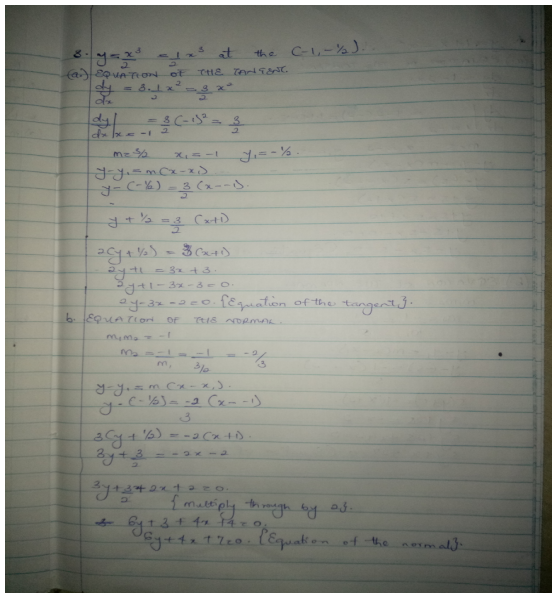 8. y = x³/2 = 1/2 x³ at the (-1, -½).
(a.) EQUATION OF THE TANGENT.
dy/dx = 3·1/2 x² = 3/2 x²
dy/dx | x = -1 = 3/2 (-1)² = 3/2
m = 3/2 x₁ = -1 y₁ = -½.
y - y₁ = m(x - x₁)
y - (-½) = 3/2 (x - -1).
y + ½ = 3/2 (x+1)
2(y + ½) = 3(x+1)
2y + 1 = 3x + 3.
2y + 1 - 3x - 3 = 0.
2y - 3x - 2 = 0. {Equation of the tangent}.
b. EQUATION OF THE NORMAL.
m₁m₂ = -1
m₂ = -1/m₁ = -1/(3/2) = -2/3
y - y₁ = m(x - x₁).
y - (-½) = -2/3 (x - -1)
3(y + ½) = -2(x+1).
3y + 3/2 = -2x - 2
3y + 3/2 + 2x + 2 = 0.
{multiply through by 2}.
6y + 3 + 4x + 4 = 0.
6y + 4x + 7 = 0. {Equation of the normal}.